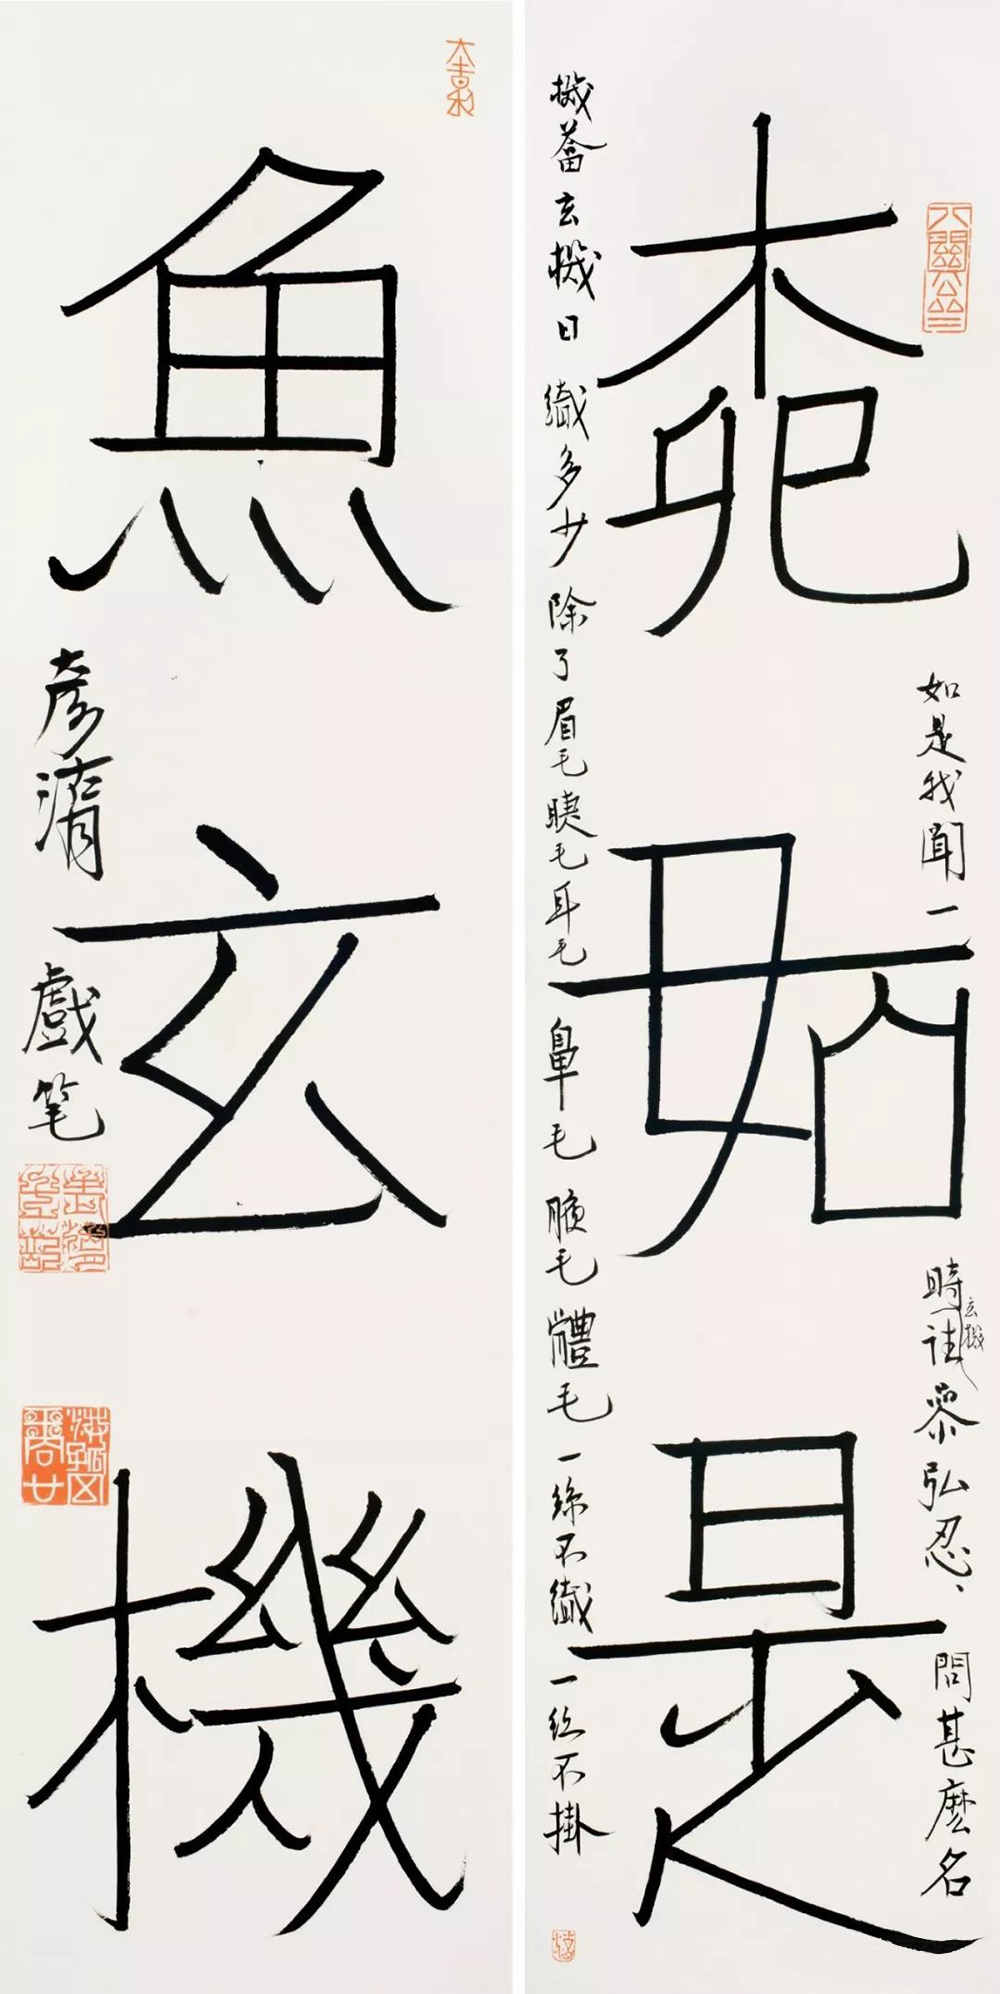 柳如是
如是我聞一時玄機往參弘忍、問甚麽名
機荅玄機曰織多少除了眉毛睫毛耳毛鼻毛腋毛體毛一絲不織一丝不掛
魚玄機
戲笔